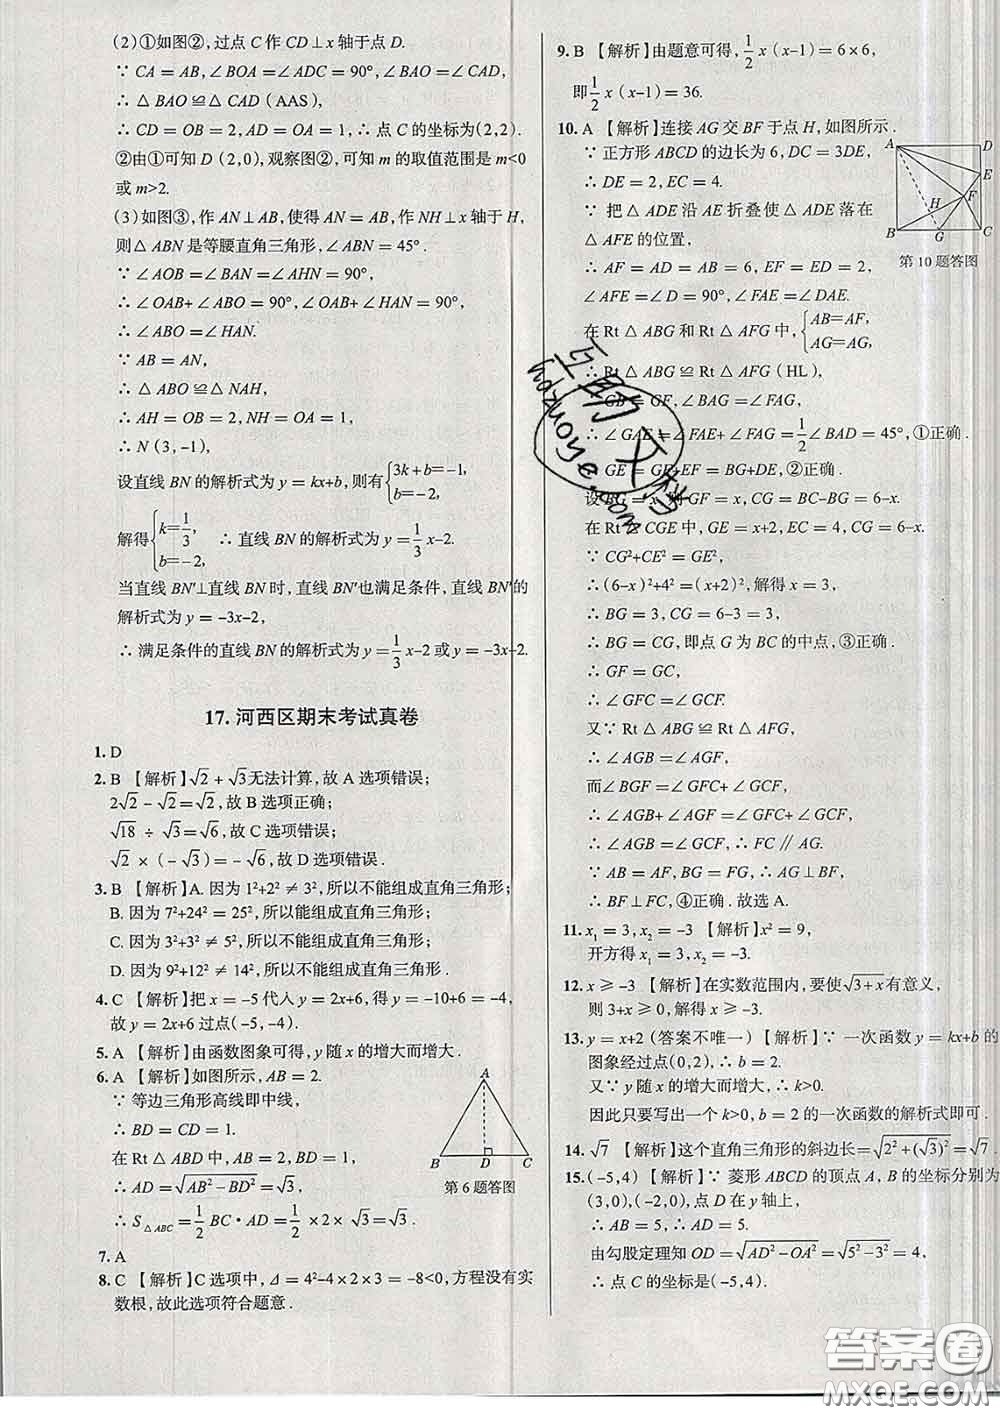 (2)①如图②,过点 C 作 CD⊥x 轴于点 D.
∵ CA = AB,∠BOA =∠ADC = 90°,∠BAO =∠CAD,
∴ △ BAO ≌△ CAD (AAS),
∴ CD = OB = 2,AD = OA = 1,∴ 点 C 的坐标为(2,2).
②由①可知 D (2,0),观察图②,可知 m 的取值范围是 m<0
或 m>2.
(3)如图③,作 AN⊥AB,使得 AN = AB,作 NH⊥x 轴于 H,
则 △ ABN 是等腰直角三角形,∠ABN = 45°.
∵ ∠AOB =∠BAN =∠AHN = 90°,
∴ ∠OAB+∠ABO = 90°,∠OAB+∠HAN = 90°,
∴ ∠ABO =∠HAN.
∵ AB = AN,
∴ △ ABO ≌△ NAH,
∴ AH = OB = 2,NH = OA = 1,
∴ N (3,-1),
设直线 BN 的解析式为 y = kx+b,则有{3k+b=-1, b=-2,
解得{k=1/3 b=-2, ∴ 直线 BN 的解析式为 y = 1/3 x-2.
当直线 BN′⊥直线 BN 时,直线 BN′也满足条件,直线 BN′的
解析式为 y = -3x-2,
∴ 满足条件的直线 BN 的解析式为 y = 1/3 x-2 或 y = -3x-2.
17. 河西区期末考试真卷
1. D
2. B 【解析】√2 + √3无法计算,故 A 选项错误;
2√2 - √2 = √2,故 B 选项正确;
√18 ÷ √3 = √6,故 C 选项错误;
√2 × (-√3) = -√6,故 D 选项错误.
3. B 【解析】A. 因为 1²+2² ≠ 3²,所以不能组成直角三角形;
B. 因为 7²+24² = 25²,所以能组成直角三角形;
C. 因为 3²+3² ≠ 5²,所以不能组成直角三角形;
D. 因为 9²+12² ≠ 14²,所以不能组成直角三角形.
4. C 【解析】把 x = -5 代入 y = 2x+6,得 y = -10+6 = -4,
故 y = 2x+6 过点(-5,-4).
5. A 【解析】由函数图象可得,y 随 x 的增大而增大.
6. A 【解析】如图所示,AB = 2.
∵ 等边三角形高线即中线,
∴ BD = CD = 1.
在 Rt △ ABD 中,AB = 2,BD = 1,
∴ AD = √(AB² - BD²) = √3,
∴ S△ABC = 1/2 BC·AD = 1/2 ×2× √3 = √3.
A
B D C
第 6 题答图
7. A
8. C 【解析】C 选项中,Δ = 4²-4×2×3 = -8<0,方程没有实
数根,故此选项符合题意.
9. B 【解析】由题意可得,1/2 x (x-1) = 6×6,
即 1/2 x (x-1) = 36.
10. A 【解析】连接 AG 交 BF 于点 H,如图所示.
∵ 正方形 ABCD 的边长为 6,DC = 3DE,
∴ DE = 2,EC = 4.
∵ 把 △ ADE 沿 AE 折叠使 △ ADE 落在
△ AFE 的位置,
∴ AF = AD = AB = 6,EF = ED = 2,
∠AFE =∠D = 90°,∠FAE =∠DAE.
A D
E
H F
B G C
第 10 题答图
在 Rt △ ABG 和 Rt △ AFG 中,{AB=AF, AG=AG,
∴ Rt △ ABG ≌ Rt △ AFG (HL),
∴ GB = GF,∠BAG =∠FAG,
∴ ∠GAE =∠FAE+∠FAG = 1/2∠BAD = 45°,①正确.
∴ GE = GF+EF = BG+DE,②正确.
设 BG = x,则 GF = x,CG = BC-BG = 6-x.
在 Rt △ CGE 中,GE = x+2,EC = 4,CG = 6-x.
∵ CG²+CE² = GE²,
∴(6-x)²+4² = (x+2)²,解得 x = 3,
∴ BG = 3,CG = 6-3 = 3,
∴ BG = CG,即点 G 为 BC 的中点,③正确.
∴ GF = GC,
∴ ∠GFC =∠GCF.
又∵ Rt △ ABG ≌ Rt △ AFG,
∴ ∠AGB =∠AGF,
而∠BGF =∠GFC+∠GCF,
∴ ∠AGB+∠AGF =∠GFC+∠GCF,
∴ ∠AGB =∠GCF,∴ FC∥AG.
∵ AB=AF,BG = FG,∴ AG⊥BF,
∴ BF⊥FC,④正确.故选 A.
11. x₁ = 3,x₂ = -3 【解析】x² = 9,
开方得 x₁ = 3,x₂ = -3.
12. x ≥ -3 【解析】在实数范围内,要使√(3+x)有意义,
则 3+x ≥ 0,解得 x ≥ -3.
13. y = x+2 (答案不唯一) 【解析】∵ 一次函数 y = kx+b 的
图象经过点(0,2),∴ b = 2.
又∵ y 随 x 的增大而增大,∴ k>0,
因此只要写出一个 k>0,b = 2 的一次函数的解析式即可.
14. √7 【解析】这个直角三角形的斜边长=√(2²+(√3)²) = √7.
15. (-5,4) 【解析】∵ 菱形 ABCD 的顶点 A,B 的坐标分别为
(3,0),(-2,0),点 D 在 y 轴上,
∴ AB = 5,∴ AD = 5.
由勾股定理知 OD = √(AD²-OA²) = √(5²-3²) = 4,
∴ 点 C 的坐标是(-5,4).
互助文档
hdzuoye.com
答案圈
MXQE.COM